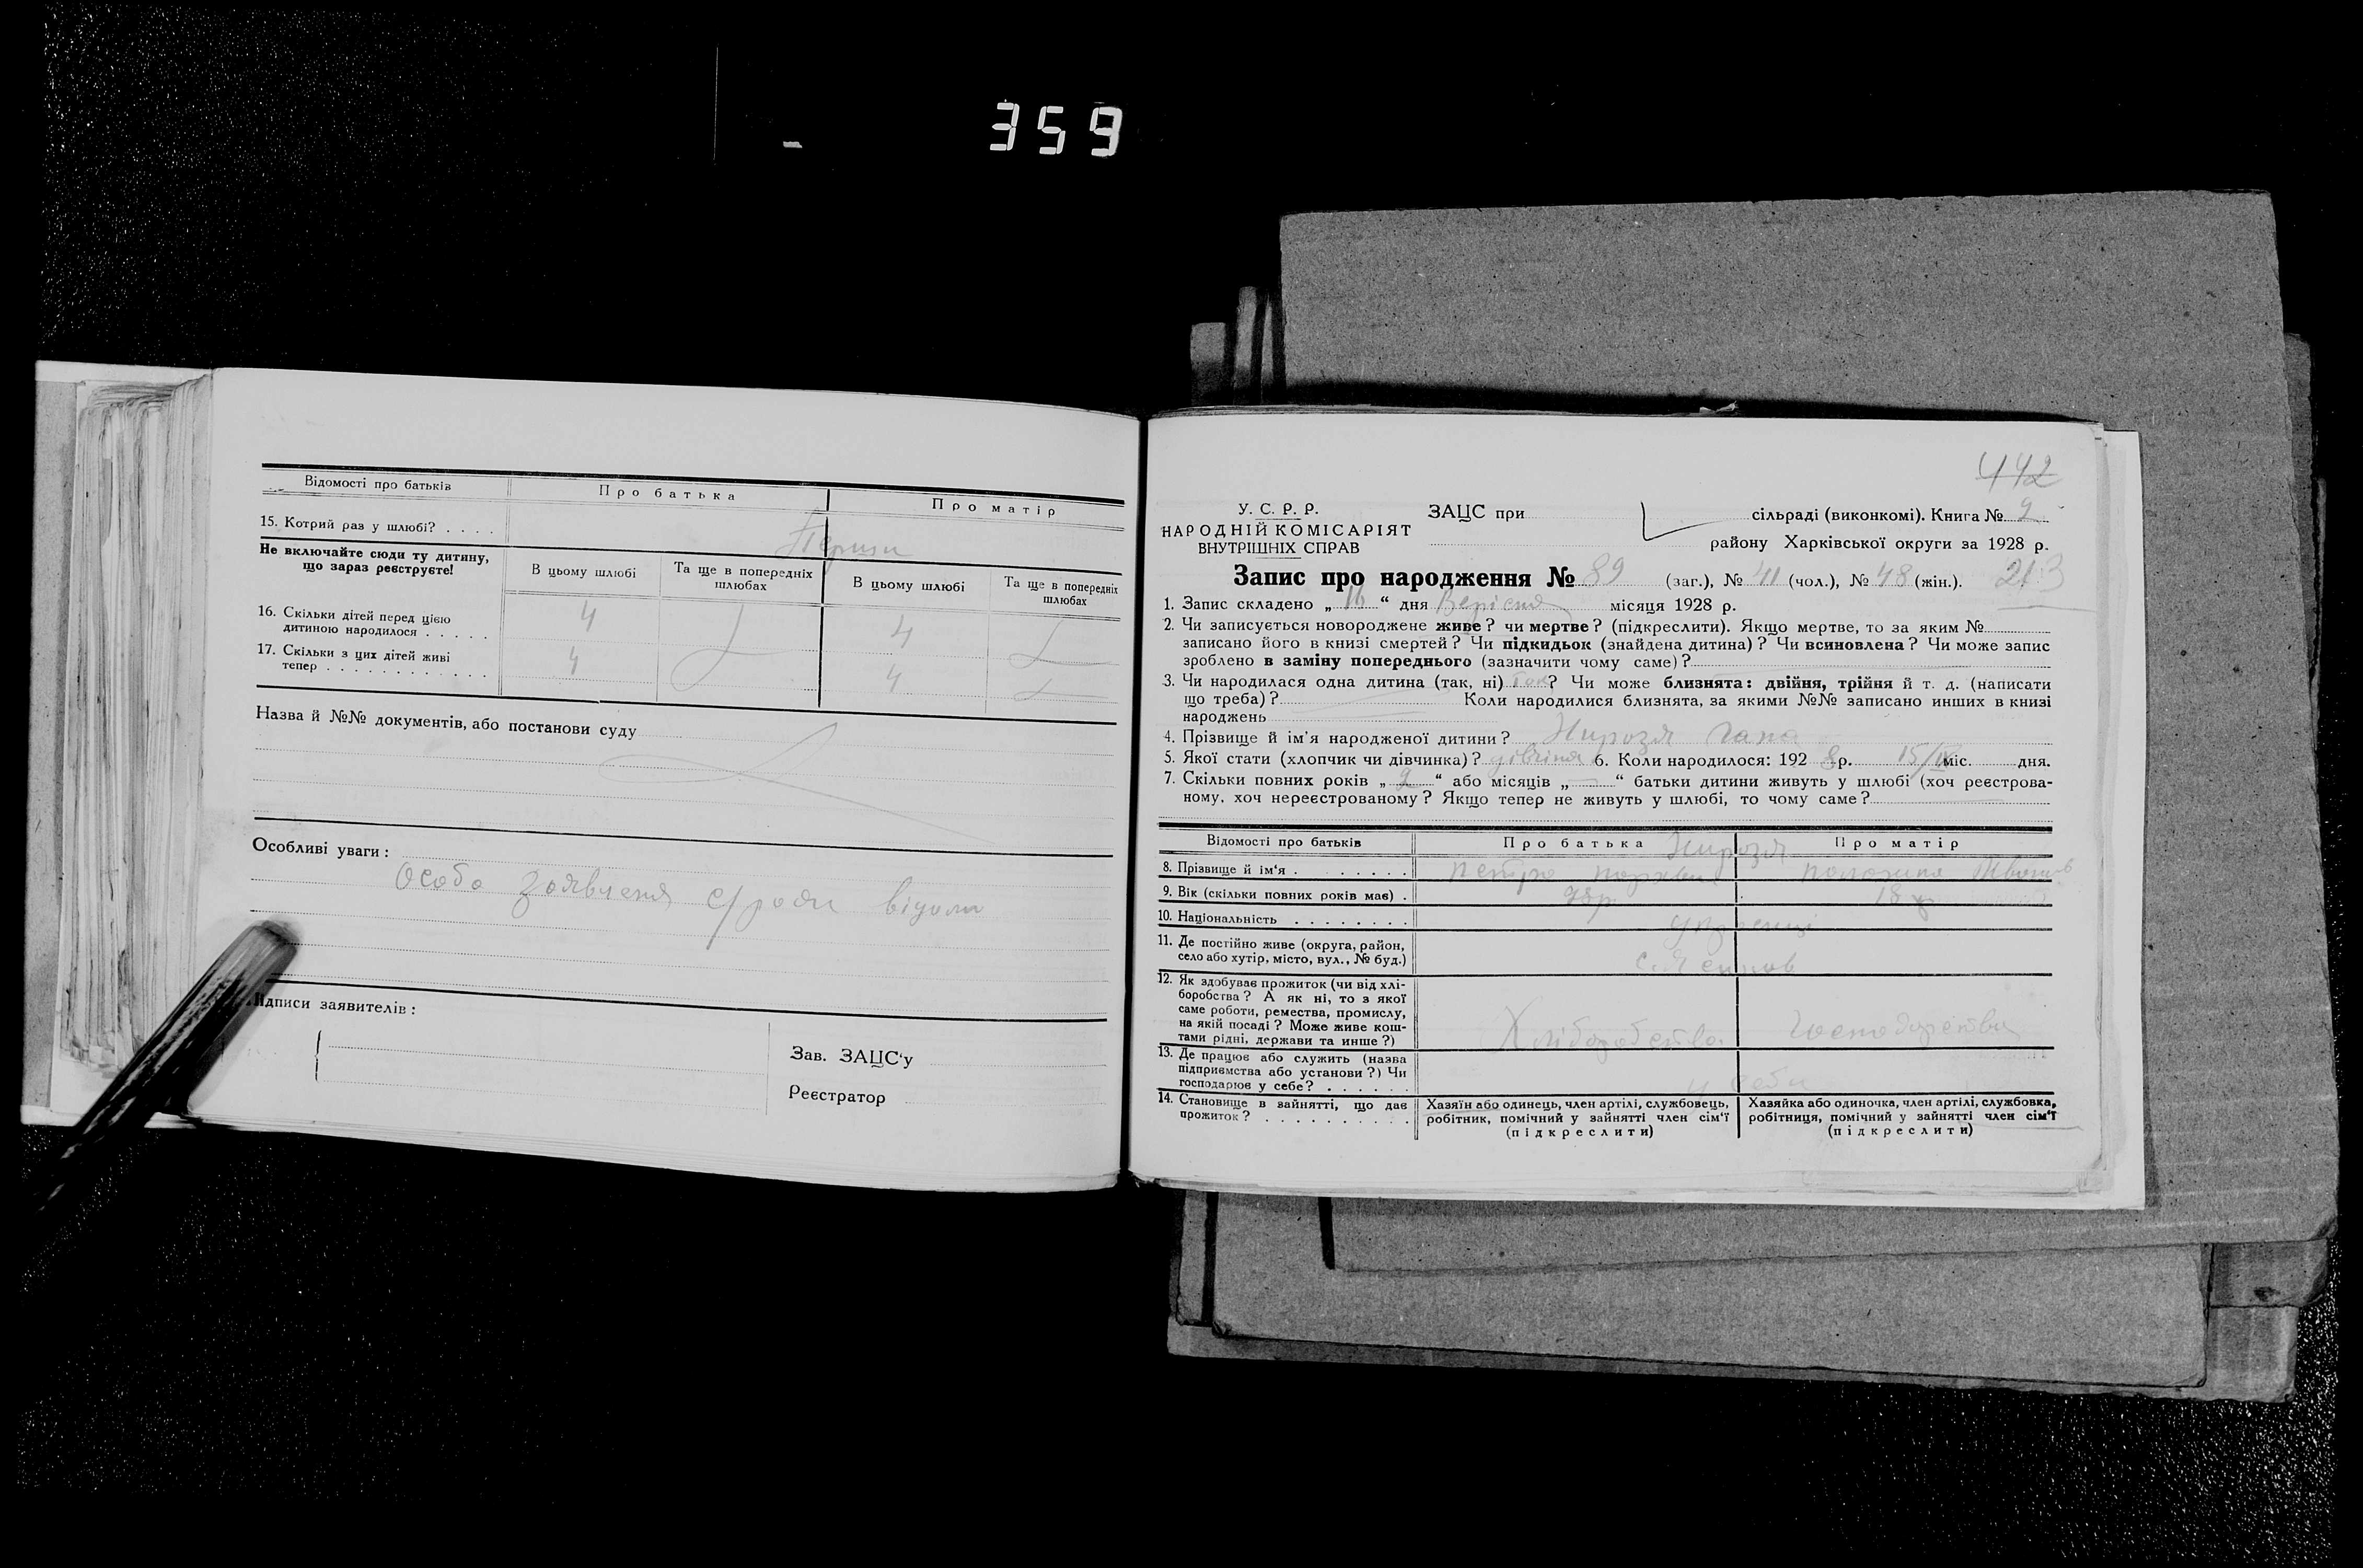 359
Відомості про батьків
Про батька
Про матір
15. Котрий раз у шлюбі? . . . .
Не включайте сюди ту дитину, що зараз реєструєте!
В цьому шлюбі
Та ще в попередніх шлюбах
В цьому шлюбі
Та ще в попередніх шлюбах
16. Скільки дітей перед цією дитиною народилося . . . . .
4
4
17. Скільки з цих дітей живі тепер . . . . . . . . . . . .
4
4
Назва й №№ документів, або постанови суду
Особливі уваги:
Особа с/ради відома
Підписи заявителів:
Зав. ЗАЦС'у
Реєстратор
442
У. С. Р. Р.
НАРОДНІЙ КОМІСАРІЯТ
ВНУТРІШНІХ СПРАВ
ЗАЦС при
сільраді (виконкомі). Книга № 2
району Харківської округи за 1928 р.
Запис про народження № 89 (заг.), № 41 (чол.), № 48 (жін.). 213
1. Запис складено „ 16 “ дня Верісня місяця 1928 р.
2. Чи записується новороджене живе? чи мертве? (підкреслити). Якщо мертве, то за яким №
записано його в книзі смертей? Чи підкидьок (знайдена дитина)? Чи всиновлена? Чи може запис
зроблено в заміну попереднього (зазначити чому саме)?
3. Чи народилася одна дитина (так, ні) так? Чи може близнята: двійня, трійня й т. д. (написати
що треба)? Коли народилися близнята, за якими №№ записано инших в книзі
народжень
4. Прізвище й ім'я народженої дитини?
5. Якої стати (хлопчик чи дівчинка)? 6. Коли народилося: 192 8 р. 15/IX міс. дня.
7. Скільки повних років „ 2 “ або місяців „ — “ батьки дитини живуть у шлюбі (хоч реєстрова-
ному, хоч нереєстрованому? Якщо тепер не живуть у шлюбі, то чому саме?
Відомості про батьків
Про батька
Про матір
8. Прізвище й ім'я . . . . . . . .
Петро
9. Вік (скільки повних років має) .
18
10. Національність . . . . . . . .
11. Де постійно живе (округа, район,
село або хутір, місто, вул., № буд.)
12. Як здобуває прожиток (чи від хлі-
боробства? А як ні, то з якої
саме роботи, ремества, промислу,
на якій посаді? Може живе кош-
тами рідні, держави та инше?)
Хліборобство
13. Де працює або служить (назва
підприємства або установи?) Чи
господарює у себе? . . . . . .
у себе
14. Становище в зайнятті, що дає
прожиток? . . . . . . . . . .
Хазяїн або одинець, член артілі, службовець,
робітник, помічний у зайнятті член сім'ї
(підкреслити)
Хазяйка або одиночка, член артілі, службовка,
робітниця, помічний у зайнятті член сім'ї
(підкреслити)